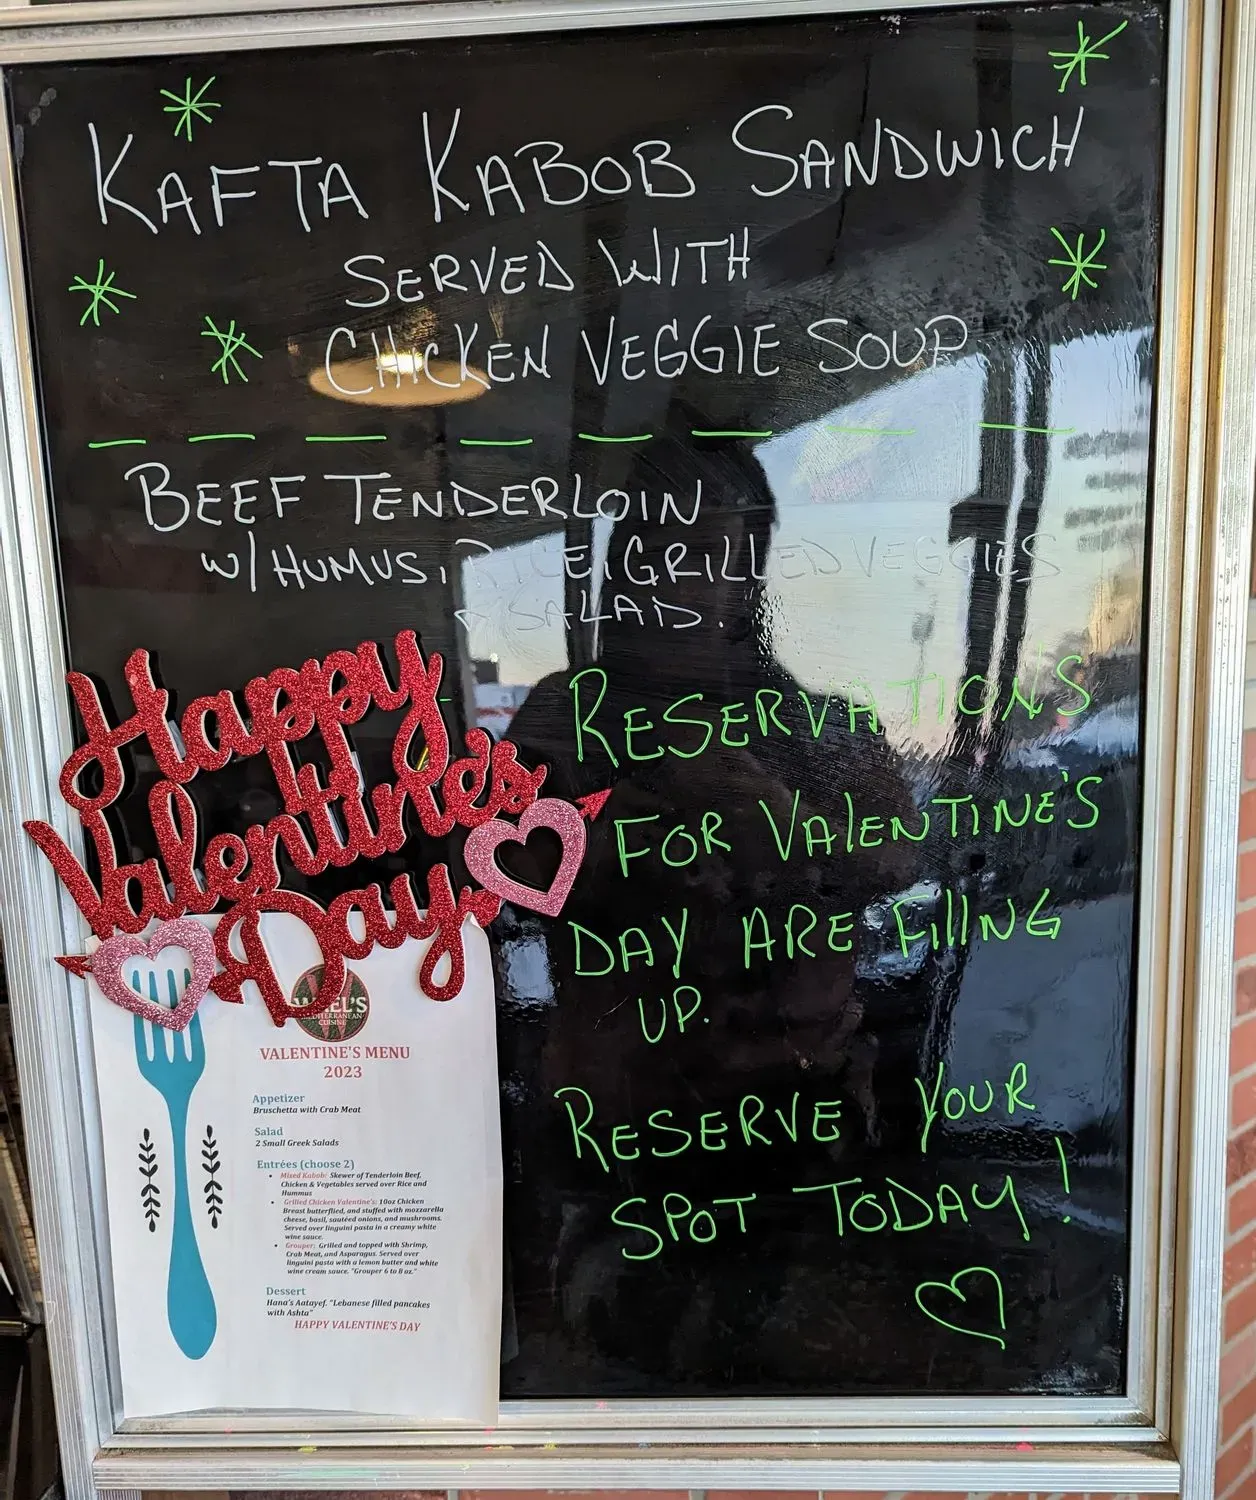 KAFTA KABOB SANDWICH
SERVED WITH
CHICKEN VEGGIE SOUP
BEEF TENDERLOIN
W/HUMUS, RICE, GRILLED VEGGIES
& SALAD.
Happy
Valentine's
Day
RESERVATION'S
FOR VALENTINE'S
DAY ARE FIllING
UP.
RESERVE YOUR
SPOT TODAY!
MEDITERRANEAN
CUISINE
VALENTINE'S MENU
2023
Appetizer
Bruschetta with Crab Meat
Salad
2 Small Greek Salads
Entrées (choose 2)
• Mixed Kabob: Skewer of Tenderloin Beef,
Chicken & Vegetables served over Rice and
Hummus
• Grilled Chicken Valentine's: 10oz Chicken
Breast butterflied, and stuffed with mozzarella
cheese, basil, sautéed onions, and mushrooms.
Served over linguini pasta in a creamy white
wine sauce.
• Grouper: Grilled and topped with Shrimp,
Crab Meat, and Asparagus. Served over
linguini pasta with a lemon butter and white
wine cream sauce. "Grouper 6 to 8 oz."
Dessert
Hana's Aatayef. "Lebanese filled pancakes
with Ashta"
HAPPY VALENTINE'S DAY